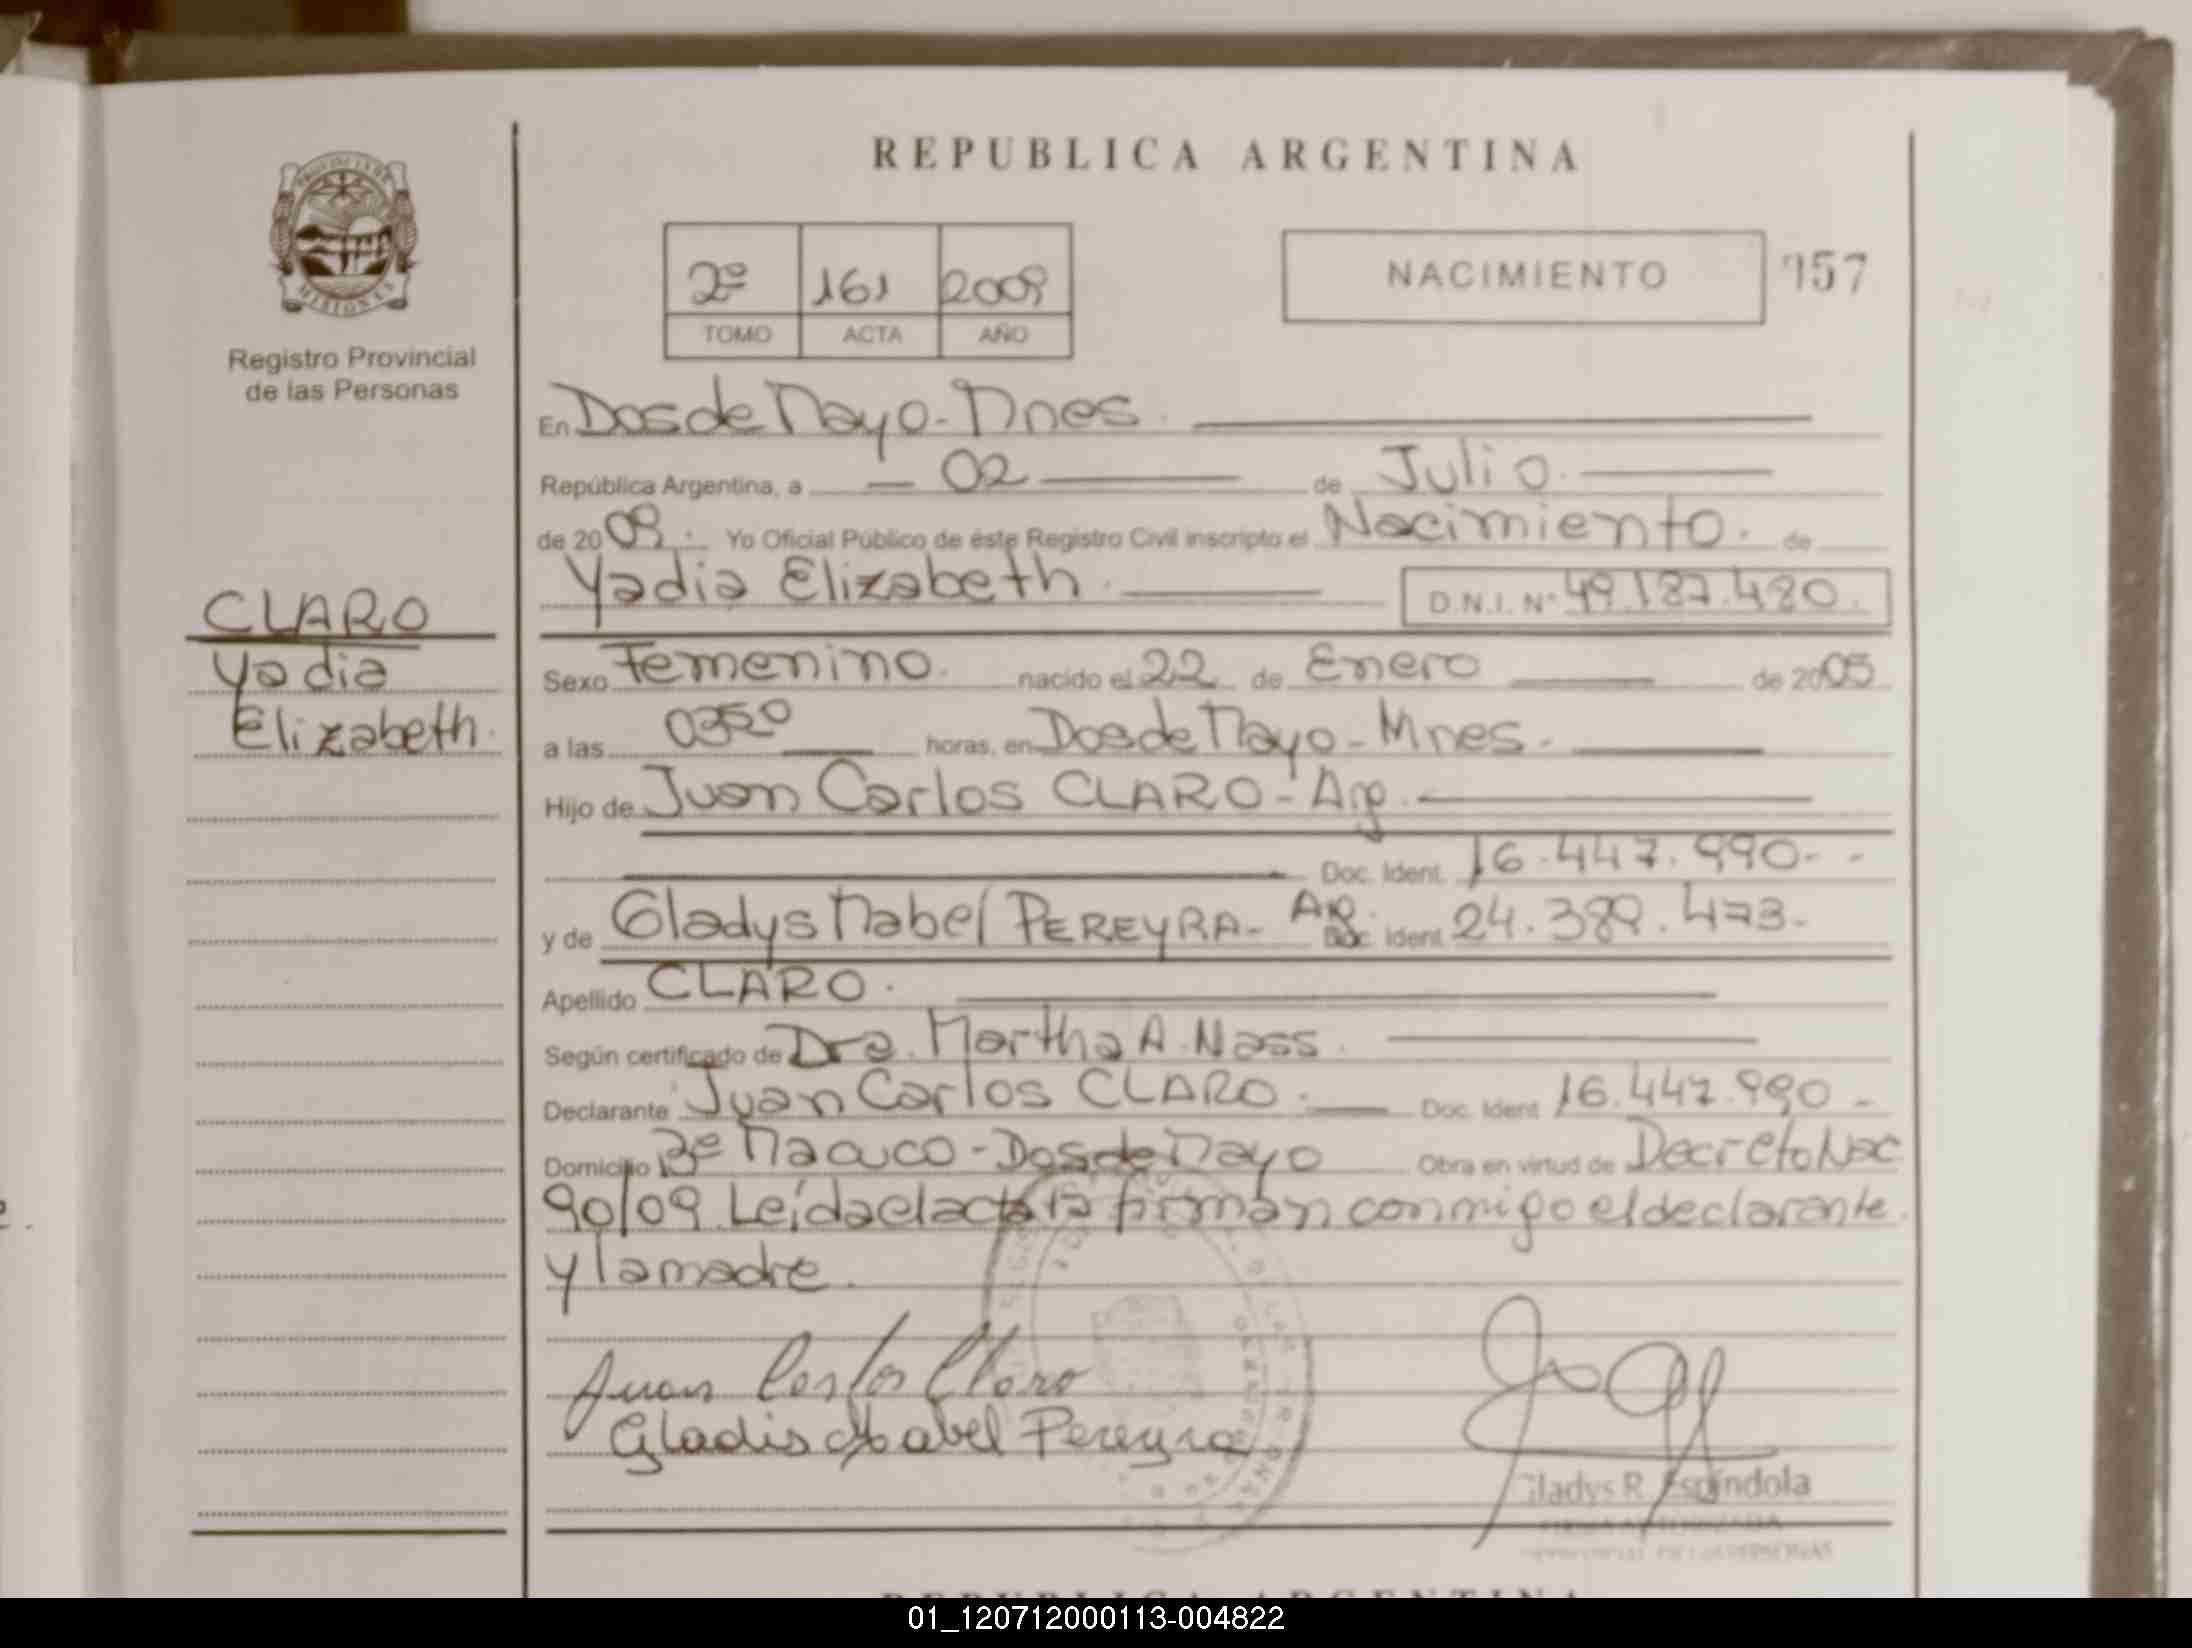 REPUBLICA ARGENTINA
PROVINCIA DE
MISIONES
Registro Provincial
de las Personas
2º 161 2009
TOMO ACTA AÑO
NACIMIENTO
157
En Dos de Mayo - Mnes.
República Argentina, a 02 de Julio.
de 2009. Yo Oficial Público de éste Registro Civil inscripto el Nacimiento. de
Yadia Elizabeth. D.N.I. Nº 49.187.480.
CLARO
Yadia
Elizabeth.
Sexo Femenino. nacido el 22 de Enero de 2005
a las 0350 horas, en Dos de Mayo - Mnes.
Hijo de Juan Carlos CLARO - Arg.
Doc. Ident. 16.447.990-
y de Gladys Mabel PEREYRA - Arg. Doc. Ident. 24.389.473-
Apellido CLARO.
Según certificado de Dra. Martha A. Nass.
Declarante Juan Carlos CLARO. Doc. Ident 16.447.990-
Domicilio Bº Macuco - Dos de Mayo Obra en virtud de Decreto Nac
90/09. Leída el acta la firman conmigo el declarante
y la madre.
Juan Carlos Claro
Gladis Mabel Pereyra
Gladys R. Espíndola
FIRMA AUTORIZADA
PROVINCIAL DE LAS PERSONAS
REPUBLICA ARGENTINA
01_120712000113-004822